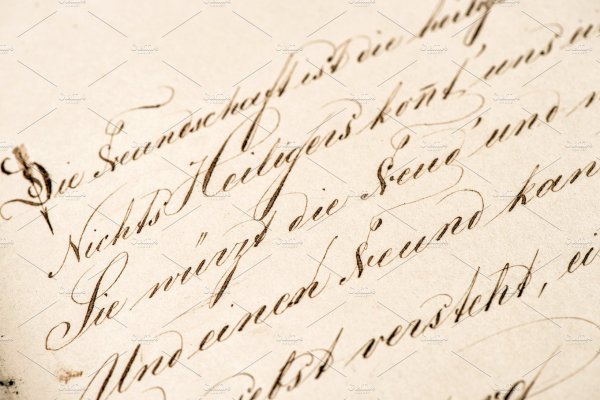 Die Freundschaft ist die heilig
Nichts Heiligers kont̄ uns ei
Sie würzt die Freud' und
Und einen Freund kan
liebst versteht, ei